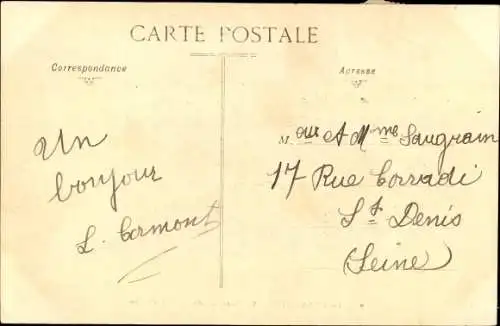 CARTE POSTALE
Correspondance
Adresse
Un
bonjour
L. Cormont
Mour et Mme Saugrain
17 Rue Corradi
St Denis
(Seine)